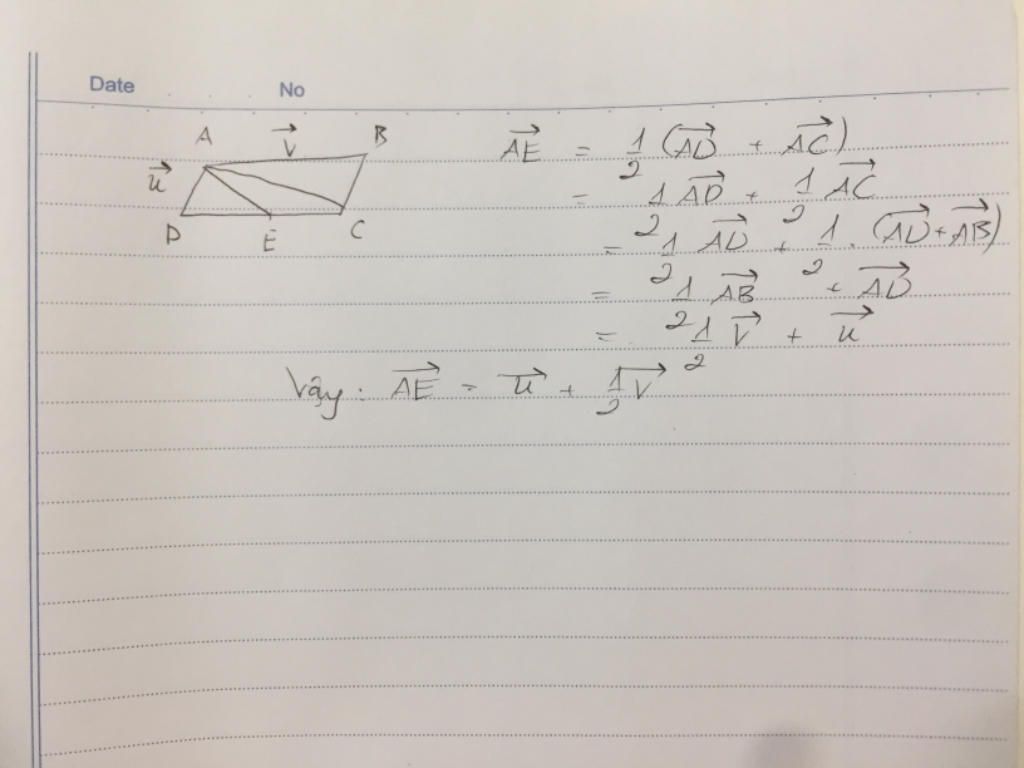 Date No
A v⃗ B
u⃗
D E C
AE⃗ = 1/2 (AD⃗ + AC⃗)
= 1/2 AD⃗ + 1/2 AC⃗
= 1/2 AD⃗ + 1/2 . (AD⃗ + AB⃗)
= 1/2 AB⃗ + AD⃗
= 1/2 v⃗ + u⃗
Vậy : AE⃗ = u⃗ + 1/2 v⃗